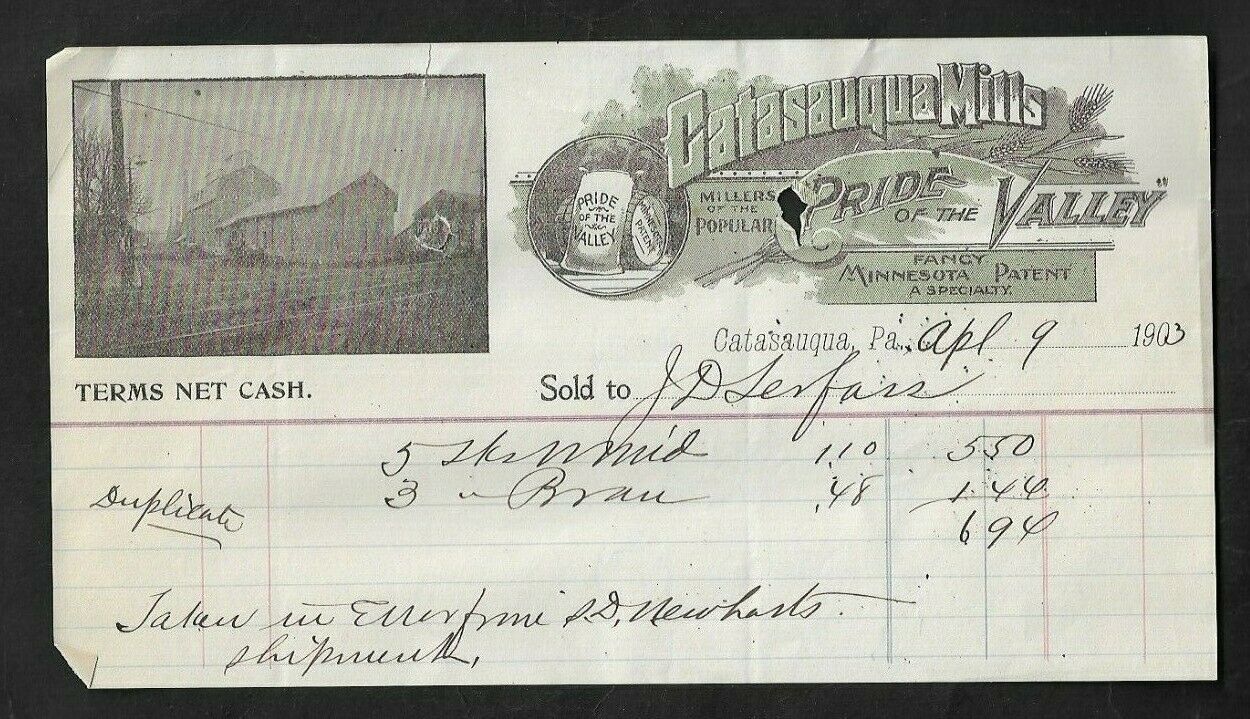 Catasauqua Mills
PRIDE
OF THE
VALLEY
MINNESOTA
PATENT
MILLERS
OF THE
POPULAR
"PRIDE OF THE VALLEY"
FANCY
MINNESOTA PATENT
A SPECIALTY.
Catasauqua, Pa., Apl 9 1903
TERMS NET CASH.
Sold to J D Serfass
5 sks W Mid 110 550
3 " Bran .48 1.44
Duplicate
694
Taken in Error from S.D. Newharts
shipment.